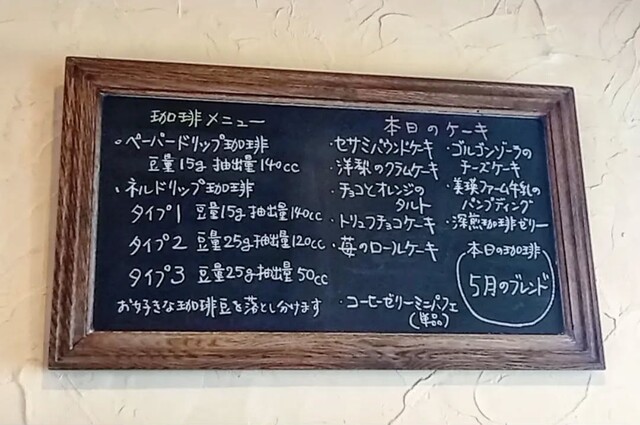 珈琲メニュー
・ペーパードリップ珈琲
豆量15g 抽出量140cc
・ネルドリップ珈琲
タイプ1 豆量15g 抽出量140cc
タイプ2 豆量25g 抽出量120cc
タイプ3 豆量25g 抽出量50cc
お好きな珈琲豆を落とし分けます
本日のケーキ
・セサミパウンドケーキ
・洋梨のクラムケーキ
・チョコとオレンジの
タルト
・トリュフチョコケーキ
・苺のロールケーキ
・コーヒーゼリーミニパフェ
(単品)
・ゴルゴンゾーラの
チーズケーキ
・美瑛ファーム牛乳の
パンプディング
・深煎珈琲ゼリー
本日の珈琲
5月のブレンド